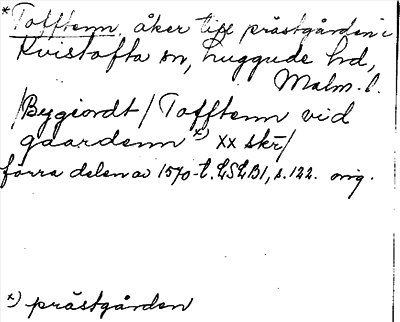 *Tofftenn, åker till prästgården i
Kvistofta sn, Luggude hd,
Malm. l.
/Bygiordt/ Tofftenn vid
gaardenn x) xx skr/
förra delen av 1570-t. LSLB1, s. 122. orig.
x) prästgården